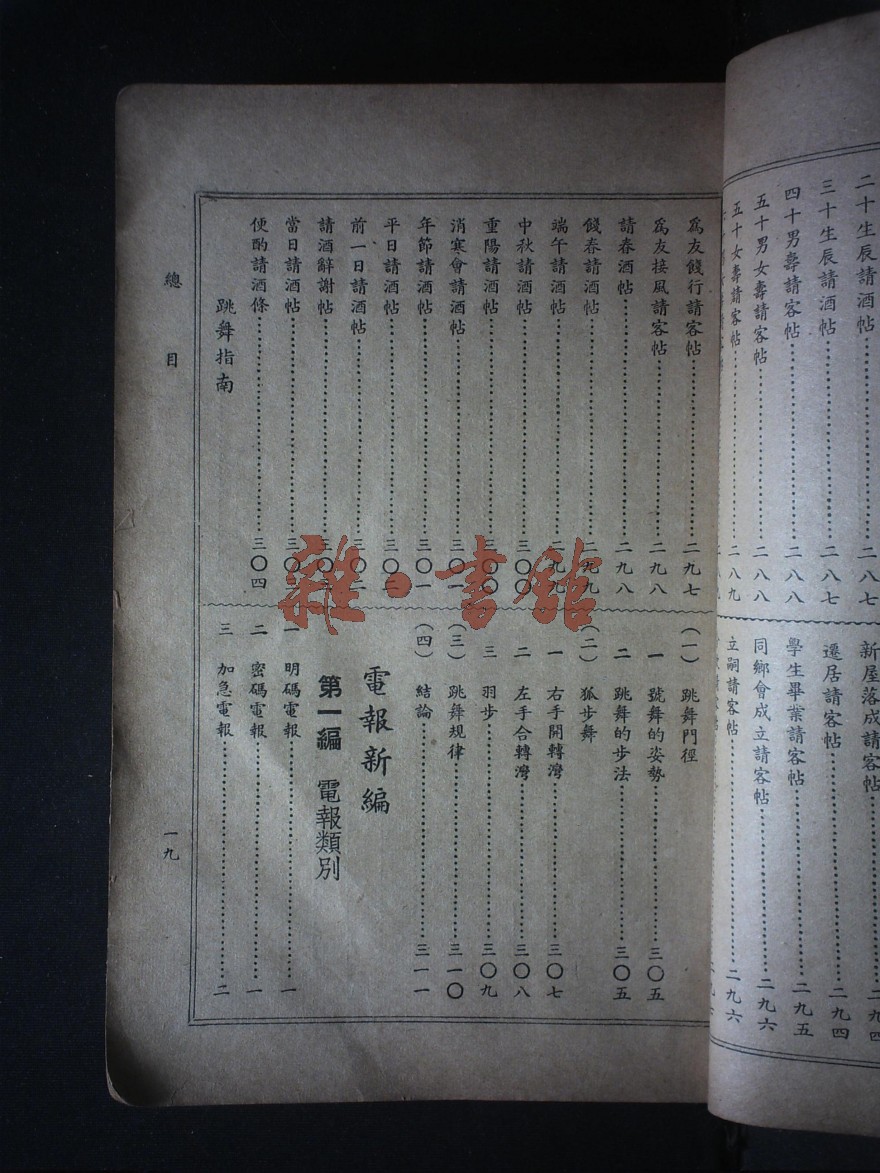 二十生辰請酒帖……二八七
三十生辰請酒帖……二八七
四十男壽請客帖……二八八
五十男女壽請客帖……二八八
五十女壽請客帖……二八九
新屋落成請客帖……二九四
遷居請客帖……二九四
學生畢業請客帖……二九五
同鄉會成立請客帖……二九六
立嗣請客帖……二九六
為友餞行請客帖……二九七
為友接風請客帖……二九八
請春酒帖……二九八
餞春請酒帖……二九九
端午請酒帖……二九九
中秋請酒帖……三〇〇
重陽請酒帖……三〇〇
消寒會請酒帖……三〇一
年節請酒帖……三〇一
平日請酒帖……三〇
前一日請酒帖……三〇
請酒辭謝帖……三〇
當日請酒帖……三〇
便酌請酒條……三〇四
跳舞指南
(一) 跳舞門徑
一 號舞的姿勢……三〇五
二 跳舞的步法……三〇五
(二) 狐步舞
一 右手開轉灣……三〇七
二 左手合轉灣……三〇八
三 羽步……三〇九
(三) 跳舞規律……三一〇
(四) 結論……三一一
電報新編
第一編 電報類別
一 明碼電報……一
二 密碼電報……一
三 加急電報……二
總目
一九
雜·書館